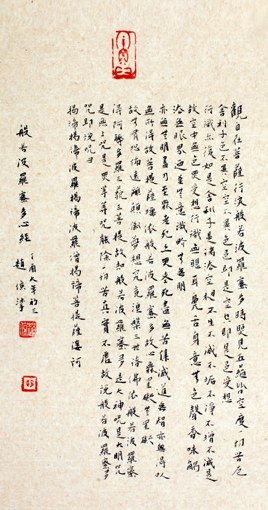 觀自在菩薩行深般若波羅蜜多時照見五蘊皆空度一切苦厄
舍利子色不異空空不異色色即是空空即是色受想
行識亦復如是舍利子是諸法空相不生不滅不垢不淨不增不減是
故空中無色無受想行識無眼耳鼻舌身意無色聲香味觸
法無眼界乃至無意識界無無明
亦無無明盡乃至無老死亦無老死盡無苦集滅道無智亦無得以
無所得故菩提薩埵依般若波羅蜜多故心無罣礙無罣礙
故無有恐怖遠離顛倒夢想究竟涅槃三世諸佛依般若波羅蜜多故
得阿耨多羅三藐三菩提故知般若波羅蜜多是大神咒是大明咒
是無上咒是無等等咒能除一切苦真實不虛故說般若波羅蜜多
咒即說咒曰
揭諦揭諦波羅揭諦波羅僧揭諦菩提薩婆訶
般若波羅蜜多心經